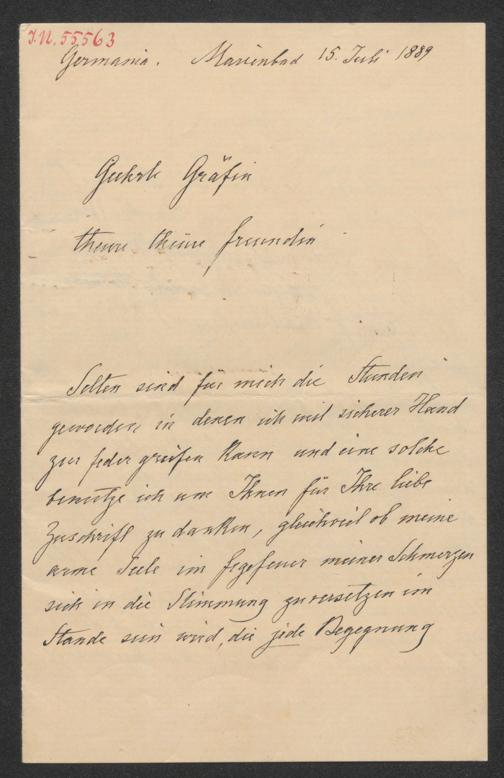 I.N. 55563
Germania. Marienbad 15. Juli 1889
Geehrte Gräfin
theure kleine Freundin
Selten sind für mich die Stunden
geworden in denen ich mit sicherer Hand
zur Feder greifen kann und eine solche
benütze ich um Ihnen für Ihre liebe
Zuschrift zu danken, gleichviel ob meine
arme Seele im Fegefeuer meiner Schmerzen
sich in die Stimmung zu versetzen im
Stande sein wird, die jede Begegnung